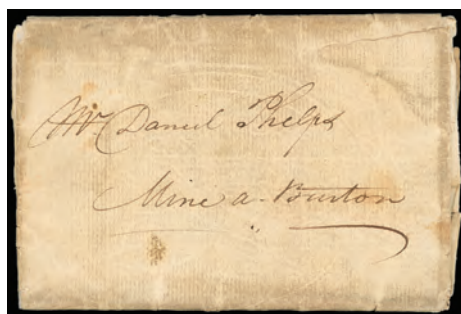 Mr. Daniel Phelps
Mine a Burton